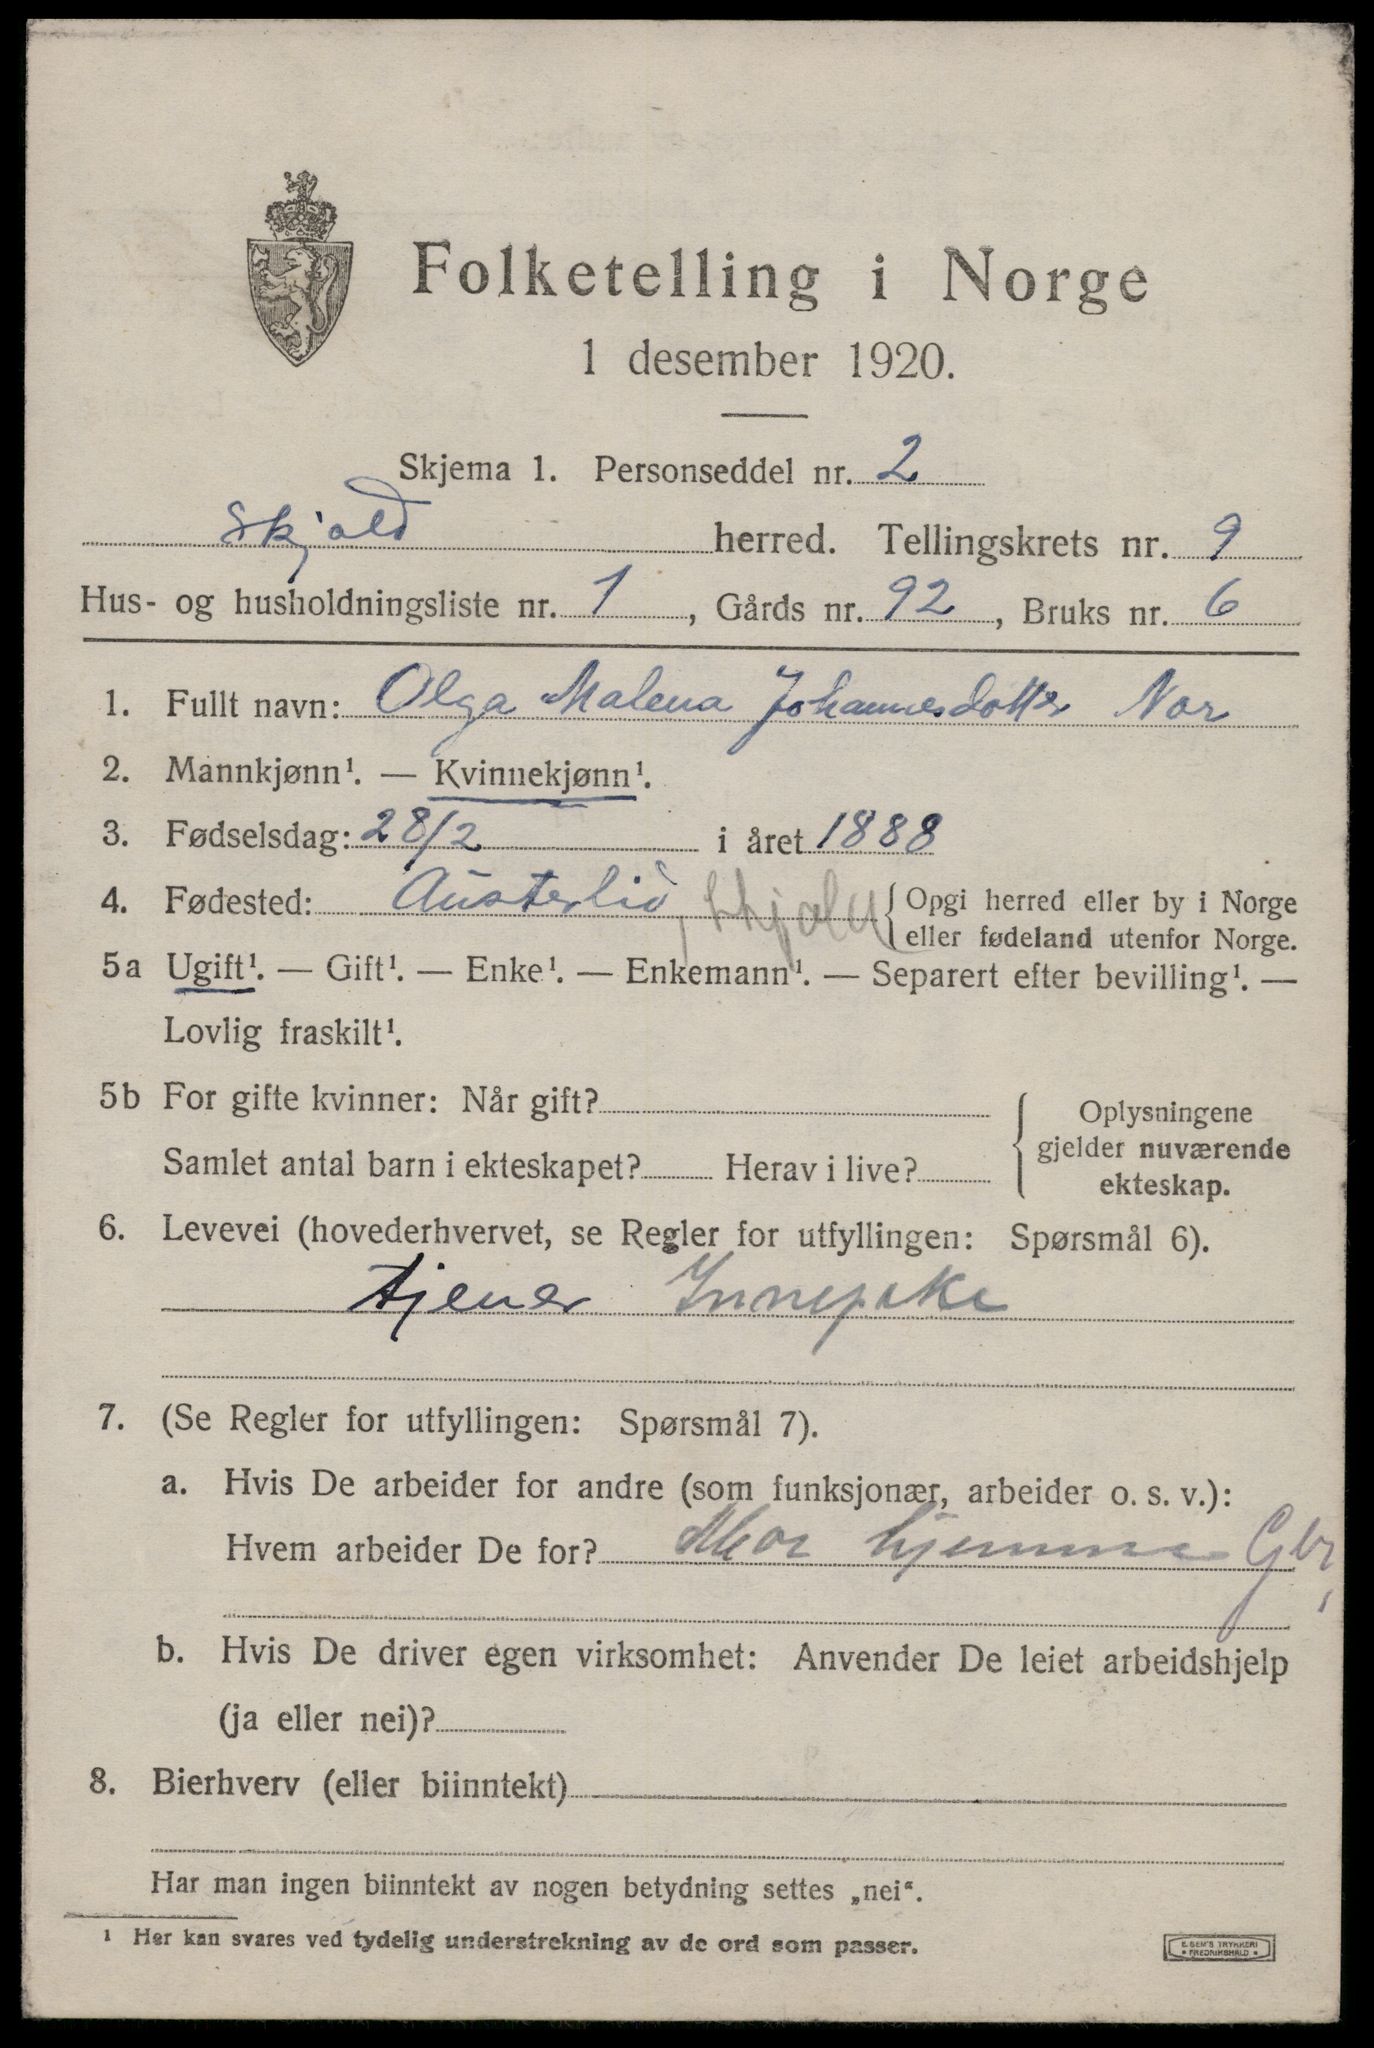 Folketelling i Norge
1 desember 1920.
Skjema 1. Personseddel nr. 2
Skjold herred. Tellingskrets nr. 9
Hus- og husholdningsliste nr. 1, Gårds nr. 92, Bruks nr. 6
1. Fullt navn: Olga Malena Johannesdotter Nor
2. Mannkjønn¹. — Kvinnekjønn¹.
3. Fødselsdag: 28/2 i året 1888
4. Fødested: Austerlid, Skjold { Opgi herred eller by i Norge
eller fødeland utenfor Norge.
5a Ugift¹. — Gift¹. — Enke¹. — Enkemann¹. — Separert efter bevilling¹. —
Lovlig fraskilt¹.
5b For gifte kvinner: Når gift?
Samlet antal barn i ekteskapet? Herav i live?
{ Oplysningene
gjelder nuværende
ekteskap.
6. Levevei (hovederhvervet, se Regler for utfyllingen: Spørsmål 6).
tjener
7. (Se Regler for utfyllingen: Spørsmål 7).
a. Hvis De arbeider for andre (som funksjonær, arbeider o. s. v.):
Hvem arbeider De for? Mor hjemme Gbr,
b. Hvis De driver egen virksomhet: Anvender De leiet arbeidshjelp
(ja eller nei)?
8. Bierhverv (eller biinntekt)
Har man ingen biinntekt av nogen betydning settes „nei“.
¹ Her kan svares ved tydelig understrekning av de ord som passer.
E. SEM'S TRYKKERI
• FREDRIKSHALD •